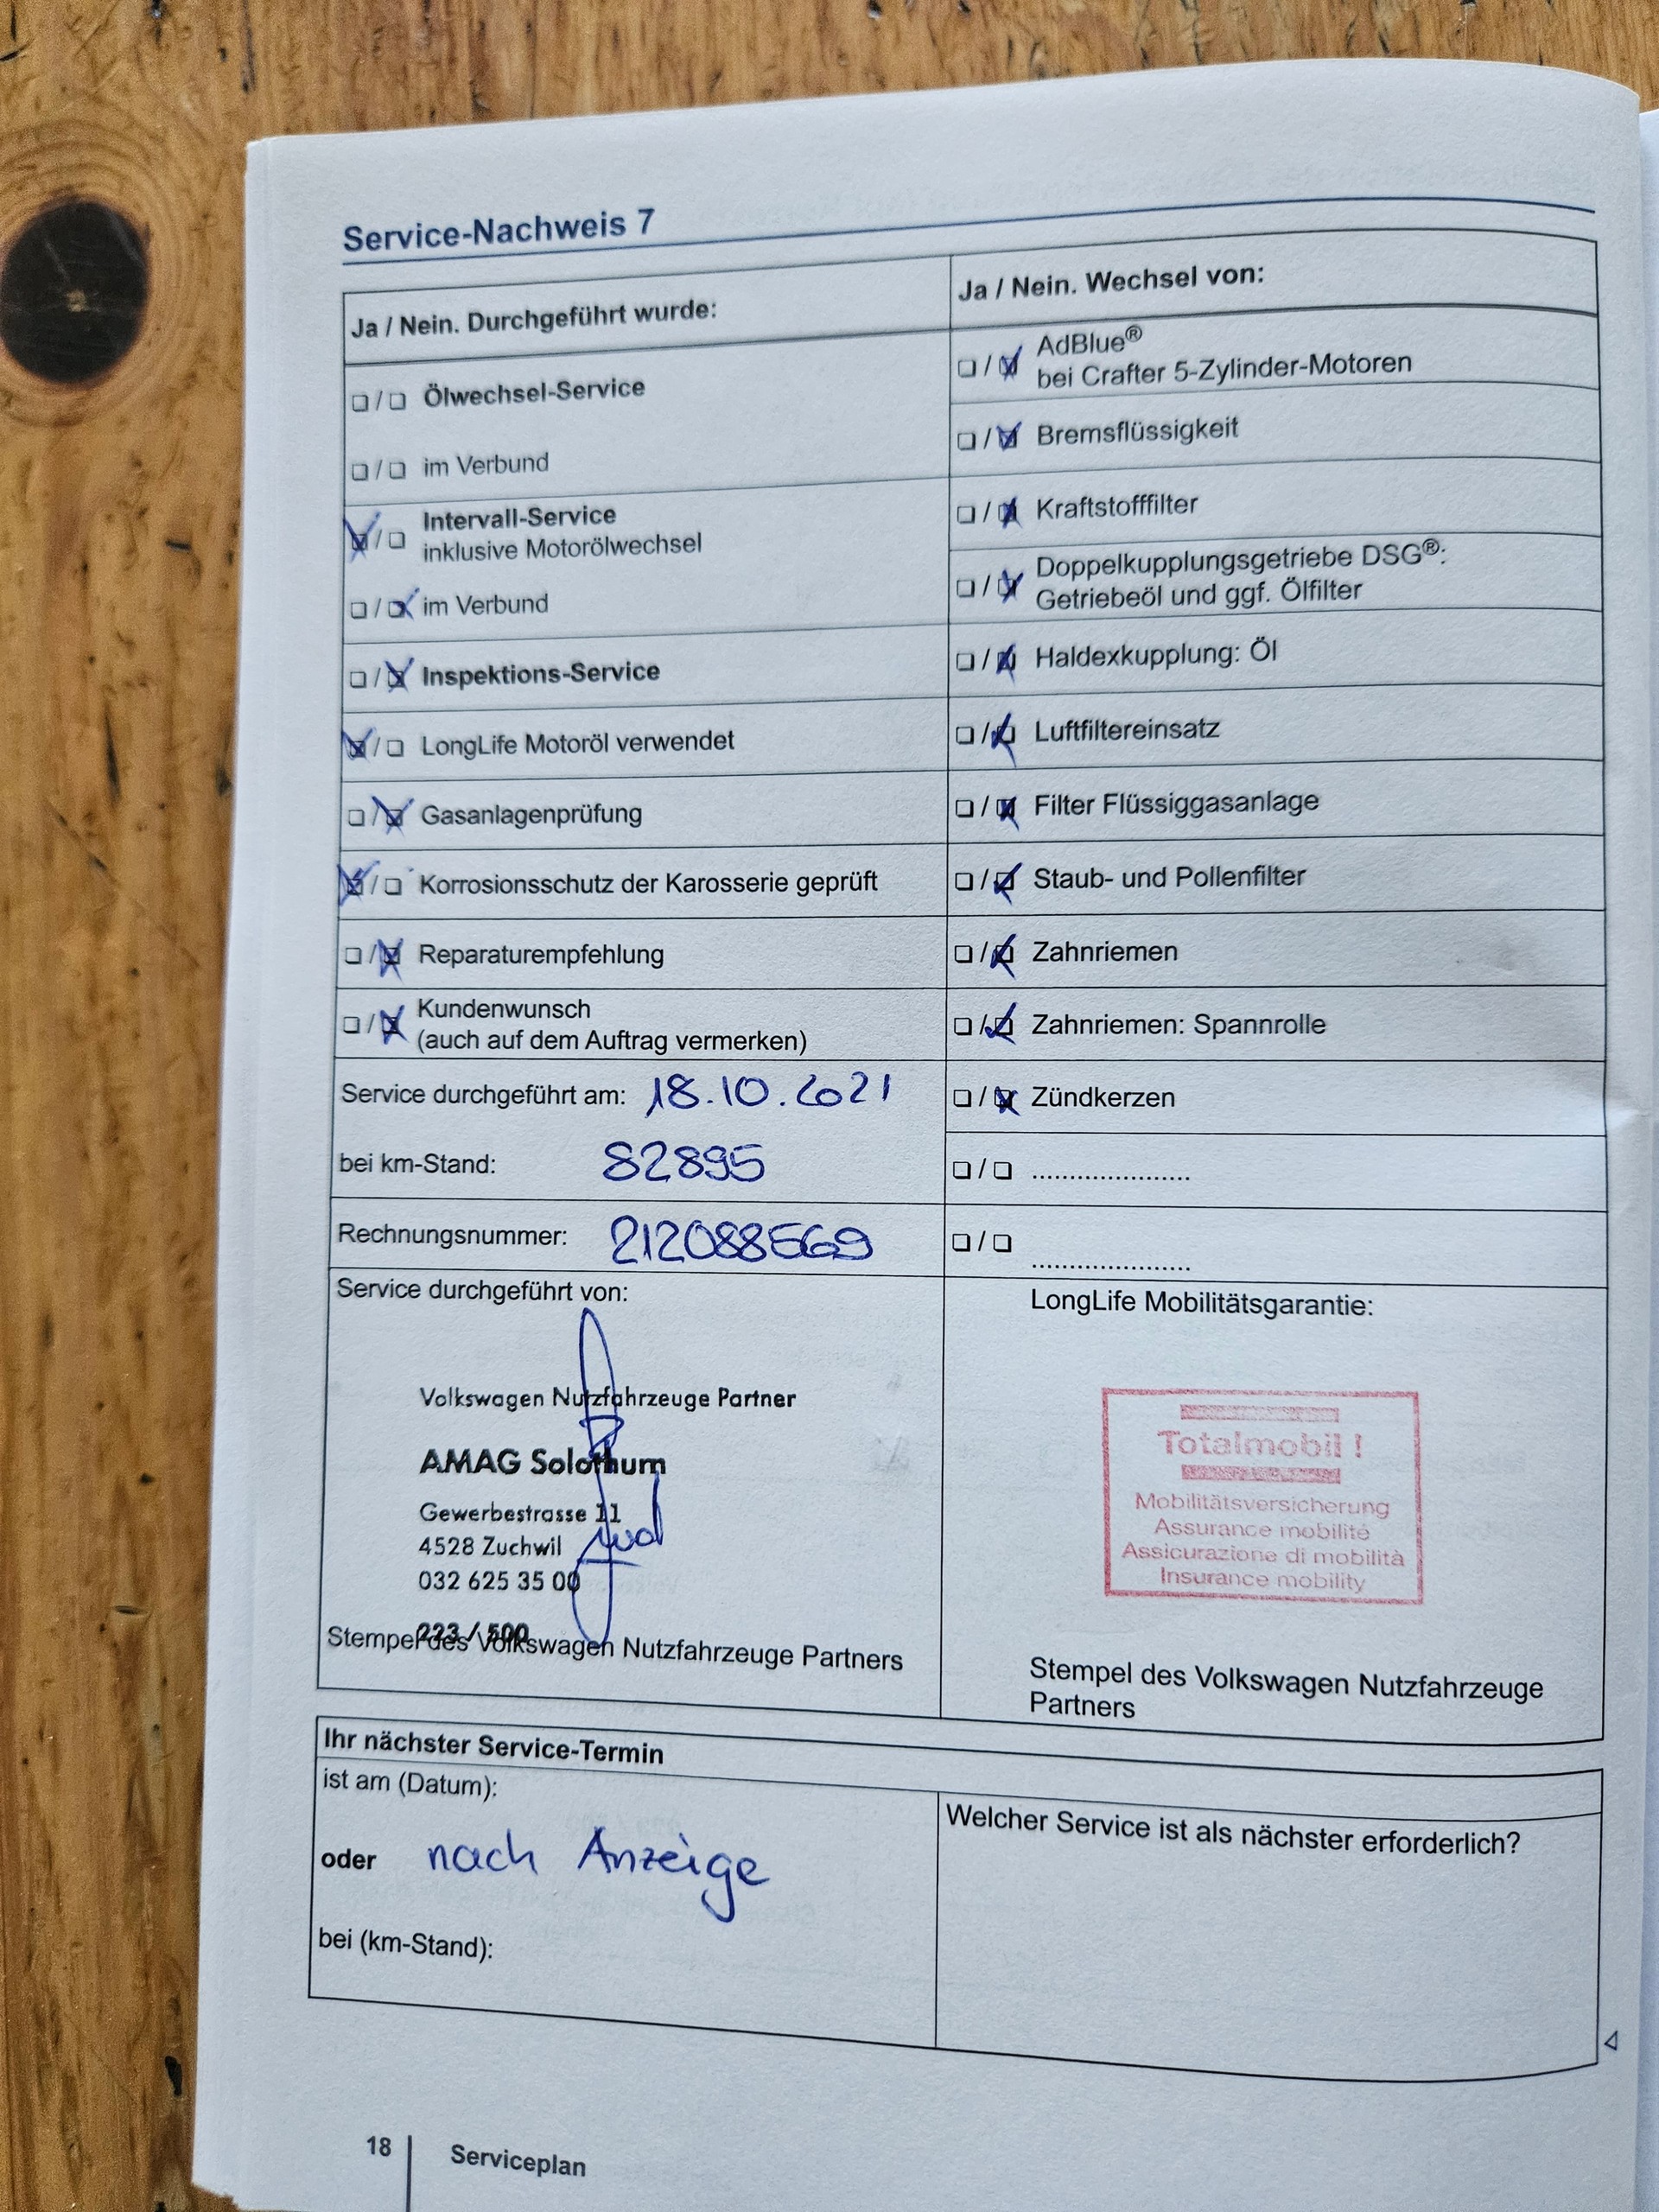 Service-Nachweis 7
Ja / Nein. Durchgeführt wurde:
❏ / ❏ Ölwechsel-Service
❏ / ❏ im Verbund
☒ / ❏ Intervall-Service
inklusive Motorölwechsel
❏ / ☒ im Verbund
❏ / ☒ Inspektions-Service
☒ / ❏ LongLife Motoröl verwendet
❏ / ☒ Gasanlagenprüfung
☒ / ❏ Korrosionsschutz der Karosserie geprüft
❏ / ☒ Reparaturempfehlung
❏ / ☒ Kundenwunsch
(auch auf dem Auftrag vermerken)
Service durchgeführt am: 18.10.2021
bei km-Stand: 82895
Rechnungsnummer: 212088569
Service durchgeführt von:
Volkswagen Nutzfahrzeuge Partner
AMAG Solothurn
Gewerbestrasse 11
4528 Zuchwil
032 625 35 00
223 / 500
Stempel des Volkswagen Nutzfahrzeuge Partners
Ja / Nein. Wechsel von:
❏ / ☒ AdBlue®
bei Crafter 5-Zylinder-Motoren
❏ / ☒ Bremsflüssigkeit
❏ / ☒ Kraftstofffilter
❏ / ☒ Doppelkupplungsgetriebe DSG®:
Getriebeöl und ggf. Ölfilter
❏ / ☒ Haldexkupplung: Öl
❏ / ☒ Luftfiltereinsatz
❏ / ☒ Filter Flüssiggasanlage
❏ / ☒ Staub- und Pollenfilter
❏ / ☒ Zahnriemen
❏ / ☒ Zahnriemen: Spannrolle
❏ / ☒ Zündkerzen
❏ / ❏ ......................
❏ / ❏ ......................
LongLife Mobilitätsgarantie:
Totalmobil !
Mobilitätsversicherung
Assurance mobilité
Assicurazione di mobilità
Insurance mobility
Stempel des Volkswagen Nutzfahrzeuge
Partners
Ihr nächster Service-Termin
ist am (Datum):
oder nach Anzeige
bei (km-Stand):
Welcher Service ist als nächster erforderlich?
18 Serviceplan